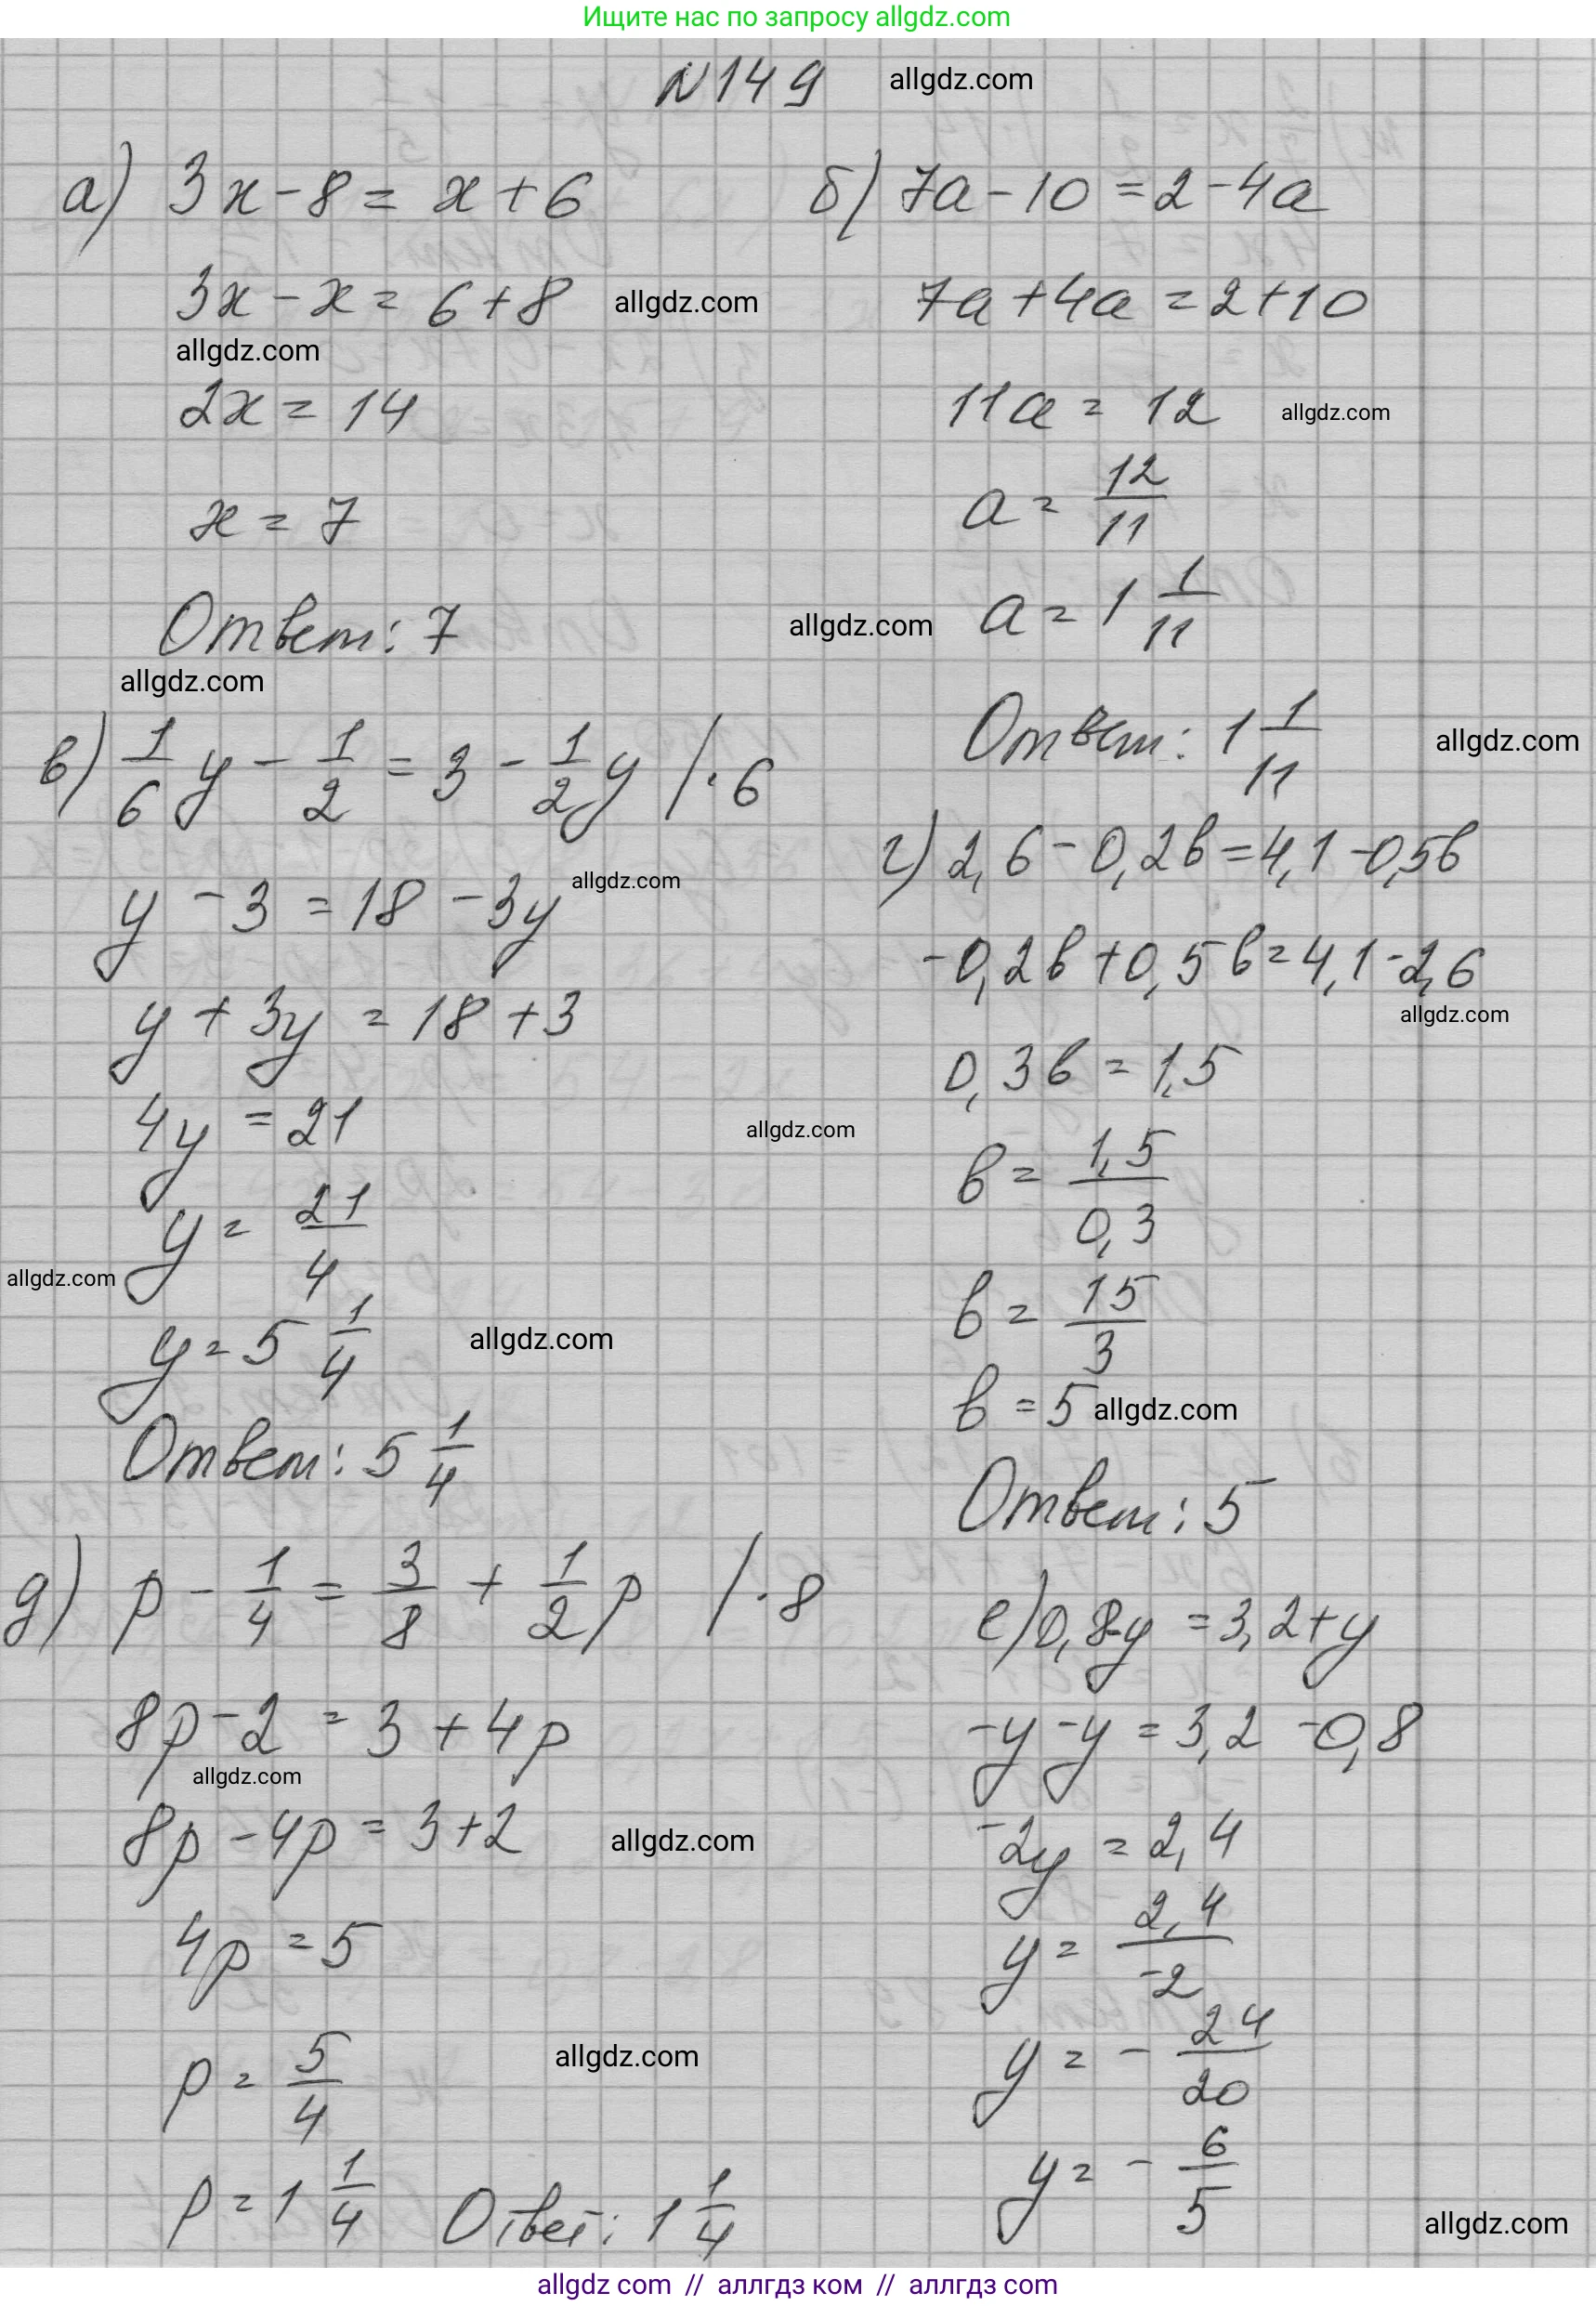 Ищите нас по запросу allgdz.com
N149 allgdz.com
а) 3x - 8 = x + 6
3x - x = 6 + 8 allgdz.com
allgdz.com
2x = 14
x = 7
Ответ: 7
allgdz.com
б) 7a - 10 = 2 - 4a
7a + 4a = 2 + 10
11a = 12 allgdz.com
a = 12/11
allgdz.com a = 1 1/11
Ответ: 1 1/11 allgdz.com
в) 1/6 y - 1/2 = 3 - 1/2 y /·6
y - 3 = 18 - 3y allgdz.com
y + 3y = 18 + 3
4y = 21 allgdz.com
y = 21/4
allgdz.com
y = 5 1/4 allgdz.com
Ответ: 5 1/4
г) 2,6 - 0,2в = 4,1 - 0,5в
-0,2в + 0,5в = 4,1 - 2,6
allgdz.com
0,3в = 1,5
в = 1,5/0,3
в = 15/3
в = 5 allgdz.com
Ответ: 5
д) p - 1/4 = 3/8 + 1/2 p /·8
8p - 2 = 3 + 4p
allgdz.com
8p - 4p = 3 + 2 allgdz.com
4p = 5
p = 5/4 allgdz.com
p = 1 1/4 Ответ: 1 1/4
е) 0,8 - y = 3,2 + y
-y - y = 3,2 - 0,8
-2y = 2,4
y = 2,4/-2
y = - 24/20
y = - 6/5
allgdz.com
allgdz com // аллгдз ком // аллгдз com